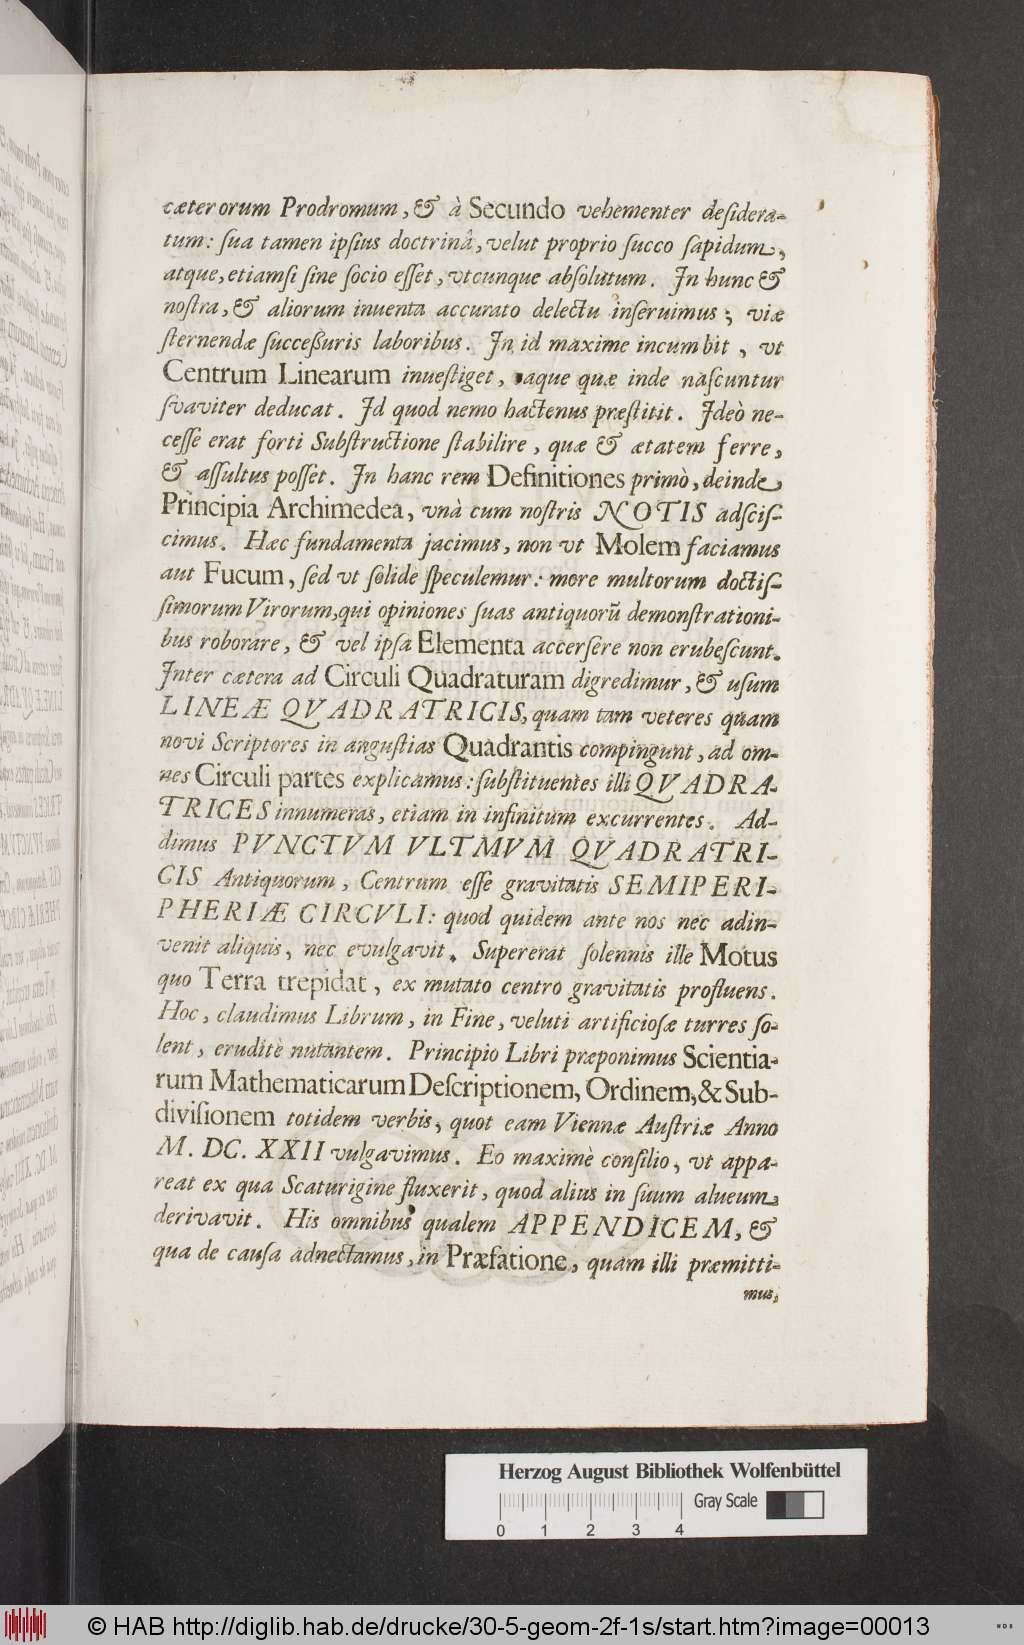 cæterorum Prodromum, & à Secundo vehementer desidera-
tum: sua tamen ipsius doctrinâ, velut proprio succo sapidum,
atque, etiamsi sine socio esset, vtcunque absolutum. In hunc &
nostra, & aliorum inuenta accurato delectu inseruimus; viæ
sternendæ successuris laboribus. In id maxime incumbit, vt
Centrum Linearum inuestiget, aque quæ inde nascuntur
svaviter deducat. Id quod nemo hactenus præstitit. Ideò ne-
cesse erat forti Substructione stabilire, quæ & ætatem ferre,
& assultus posset. In hanc rem Definitiones primò, deinde
Principia Archimedea, vnà cum nostris NOTIS adscis-
cimus. Hæc fundamenta jacimus, non vt Molem faciamus
aut Fucum, sed vt solide speculemur: more multorum doctis-
simorum Virorum, qui opiniones suas antiquorũ demonstrationi-
bus roborare, & vel ipsa Elementa accersere non erubescunt.
Inter cætera ad Circuli Quadraturam digredimur, & usum
LINEÆ QVADRATRICIS, quam tam veteres quam
novi Scriptores in angustias Quadrantis compingunt, ad om-
nes Circuli partes explicamus: substituentes illi QVADRA-
TRICES innumeras, etiam in infinitum excurrentes. Ad-
dimus PVNCTVM VLTMVM QVADRATRI-
CIS Antiquorum, Centrum esse gravitatis SEMIPERI-
PHERIÆ CIRCVLI: quod quidem ante nos nec adin-
venit aliquis, nec evulgavit. Supererat solennis ille Motus
quo Terra trepidat, ex mutato centro gravitatis profluens.
Hoc, claudimus Librum, in Fine, veluti artificiosæ turres so-
lent, eruditè nutantem. Principio Libri præponimus Scientia-
rum Mathematicarum Descriptionem, Ordinem, & Sub-
divisionem totidem verbis, quot eam Viennæ Austriæ Anno
M. DC. XXII vulgavimus. Eo maximè consilio, vt appa-
reat ex qua Scaturigine fluxerit, quod alius in suum alueum
derivavit. His omnibus qualem APPENDICEM, &
qua de causa adnectamus, in Præfatione, quam illi præmitti-
mus,
Herzog August Bibliothek Wolfenbüttel
Gray Scale
0 1 2 3 4
© HAB http://diglib.hab.de/drucke/30-5-geom-2f-1s/start.htm?image=00013